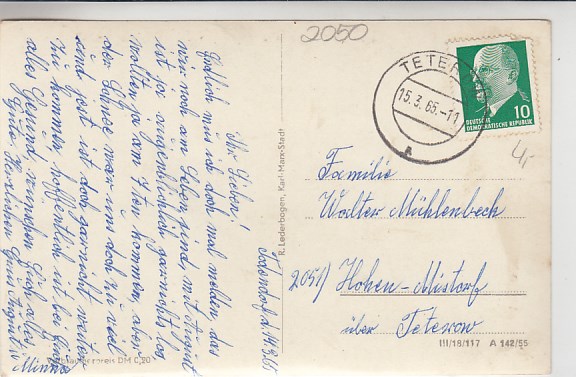 2050
TETEROW
15.3.65.-11
a
DEUTSCHE
DEMOKRATISCHE REPUBLIK
10
4,-
Todendorf, d. 14.3.65
Ihr Lieben!
Endlich muss ich doch mal melden das
wir noch am Leben sind mit
ist ja augenblicklich garnichts los
wollten ja am 7ten kommen aber
der Schnee war uns doch zu viel
sind jetzt ist doch garnicht weiter
zu kommen hoffentlich ist bei Euch
alles Gesund, wünschen Euch alles
Gute. Herzlichen Gruß
Minna
Familie
Walter Mühlenbeck
2051) Hohen-Mistorf
über Teterow
R. Lederbogen, Karl-Marx-Stadt
Verbraucherpreis DM 0,20
III/18/117 A 142/65